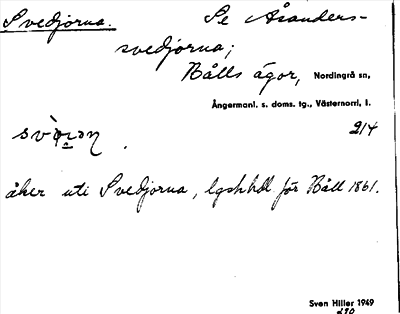 Svedjorna. Se Åsanders-
svedjorna;
Bålls ägor, Nordingrå sn,
Ångermanl. s. doms. tg., Västernorrl, l.
214
åker uti Svedjorna, lgshhdl för Båll 1861.
Sven Hiller 1949